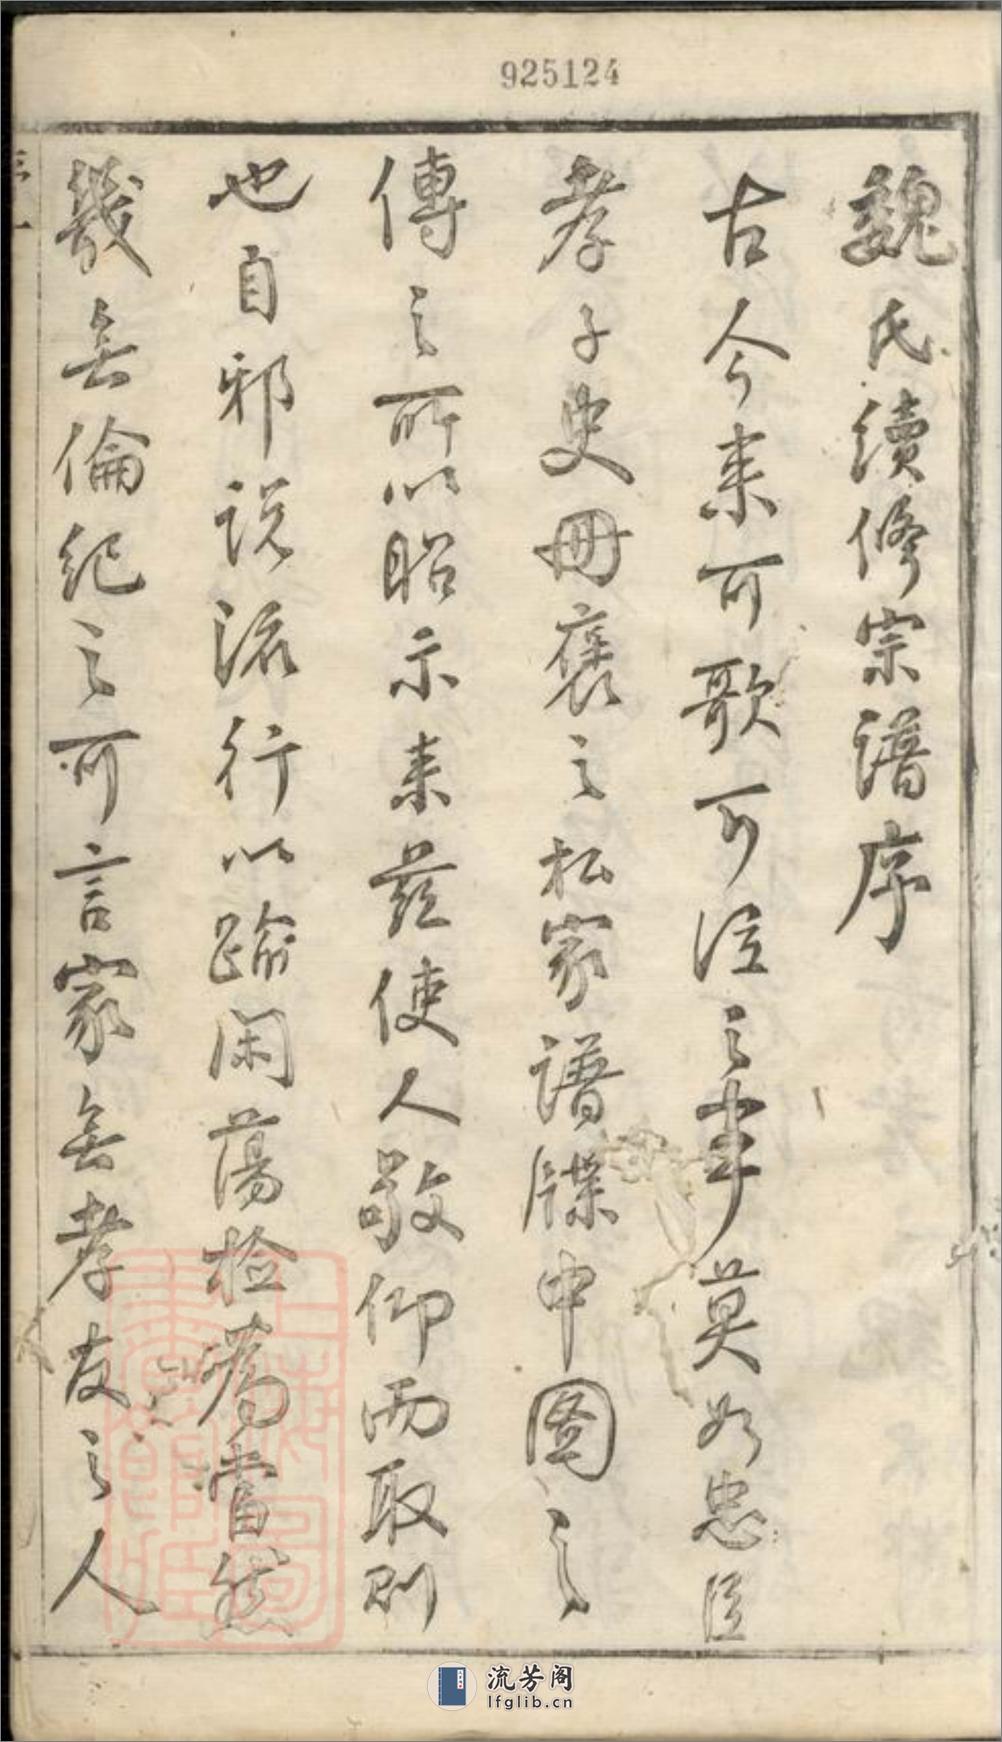 925124
魏氏續修宗譜序
古今来可歌可泣之事莫如忠臣
孝子史冊褒之私家譜牒中圖之
傳之所以昭示来茲使人敬仰而取則
也自邪説流行以踰閑蕩檢為當然
幾無倫紀之可言家無孝友之人
流芳阁
lfglib.cn